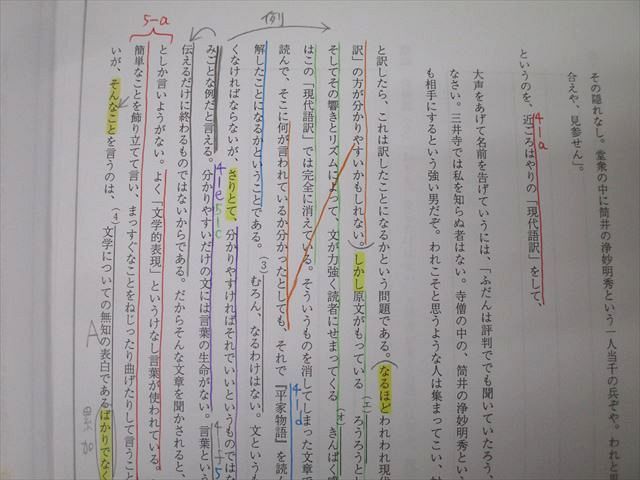 その隠れなし。堂衆の中に筒井の浄妙明秀という一人当千の兵ぞや。われと思
合えや、見参せん」。
というのを、近ごろはやりの「現代語訳」をして、
大声をあげて名前を告げていうには、「ふだんは評判ででも聞いていたろう、
なさい。三井寺では私を知らぬ者はない。寺僧の中の、筒井の浄妙明秀とい
も相手にするという強い男だぞ。われこそと思うような人は集まってこい、
と訳したら、これは訳したことになるかという問題である。なるほどわれわれ現代
訳」の方が分かりやすいかもしれない。しかし原文がもっている(エ)ろうろうとし
そしてその響きとリズムによって、文が力強く読者にせまってくる(オ)きんぱく感
はこの「現代語訳」では完全に消えている。そういうものを消してしまった文章で
読んで、そこに何が言われているか分かったとしても、それで『平家物語』を読ん
解したことになるかということである。(3)むろん、なるわけはない。文というも
くなければならないが、さりとて、分かりやすければそれでいいというものではな
みごとな例だと言える。分かりやすいだけの文には言葉の生命がない。言葉という
伝えるだけに終わるものではないからである。だからそんな文章を聞かされると、
としか言いようがない。よく「文学的表現」というけなし言葉が使われている。
簡単なことを飾り立てて言い、まっすぐなことをねじったり曲げたりして言うこと
いが、そんなことを言うのは、(4)文学についての無知の表白であるばかりでなく
例
5-a
4-a
4-d
4-e
5-c
4-子5
A
累加